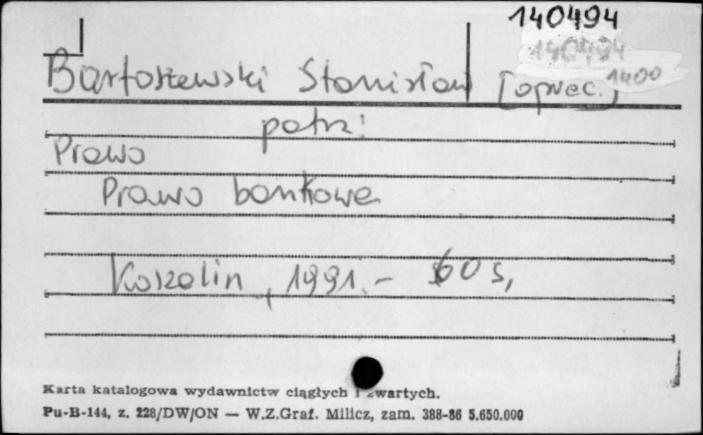 140494
140494
1400
Bartoszewski Stanisław [oprac.]
patrz:
Prawo
Prawo bankowe
Koszalin, 1991. - 60 s,
Karta katalogowa wydawnictw ciągłych i zwartych.
Pu-B-144, z. 228/DW/ON — W.Z.Graf. Milicz, zam. 388-86 5.650.000